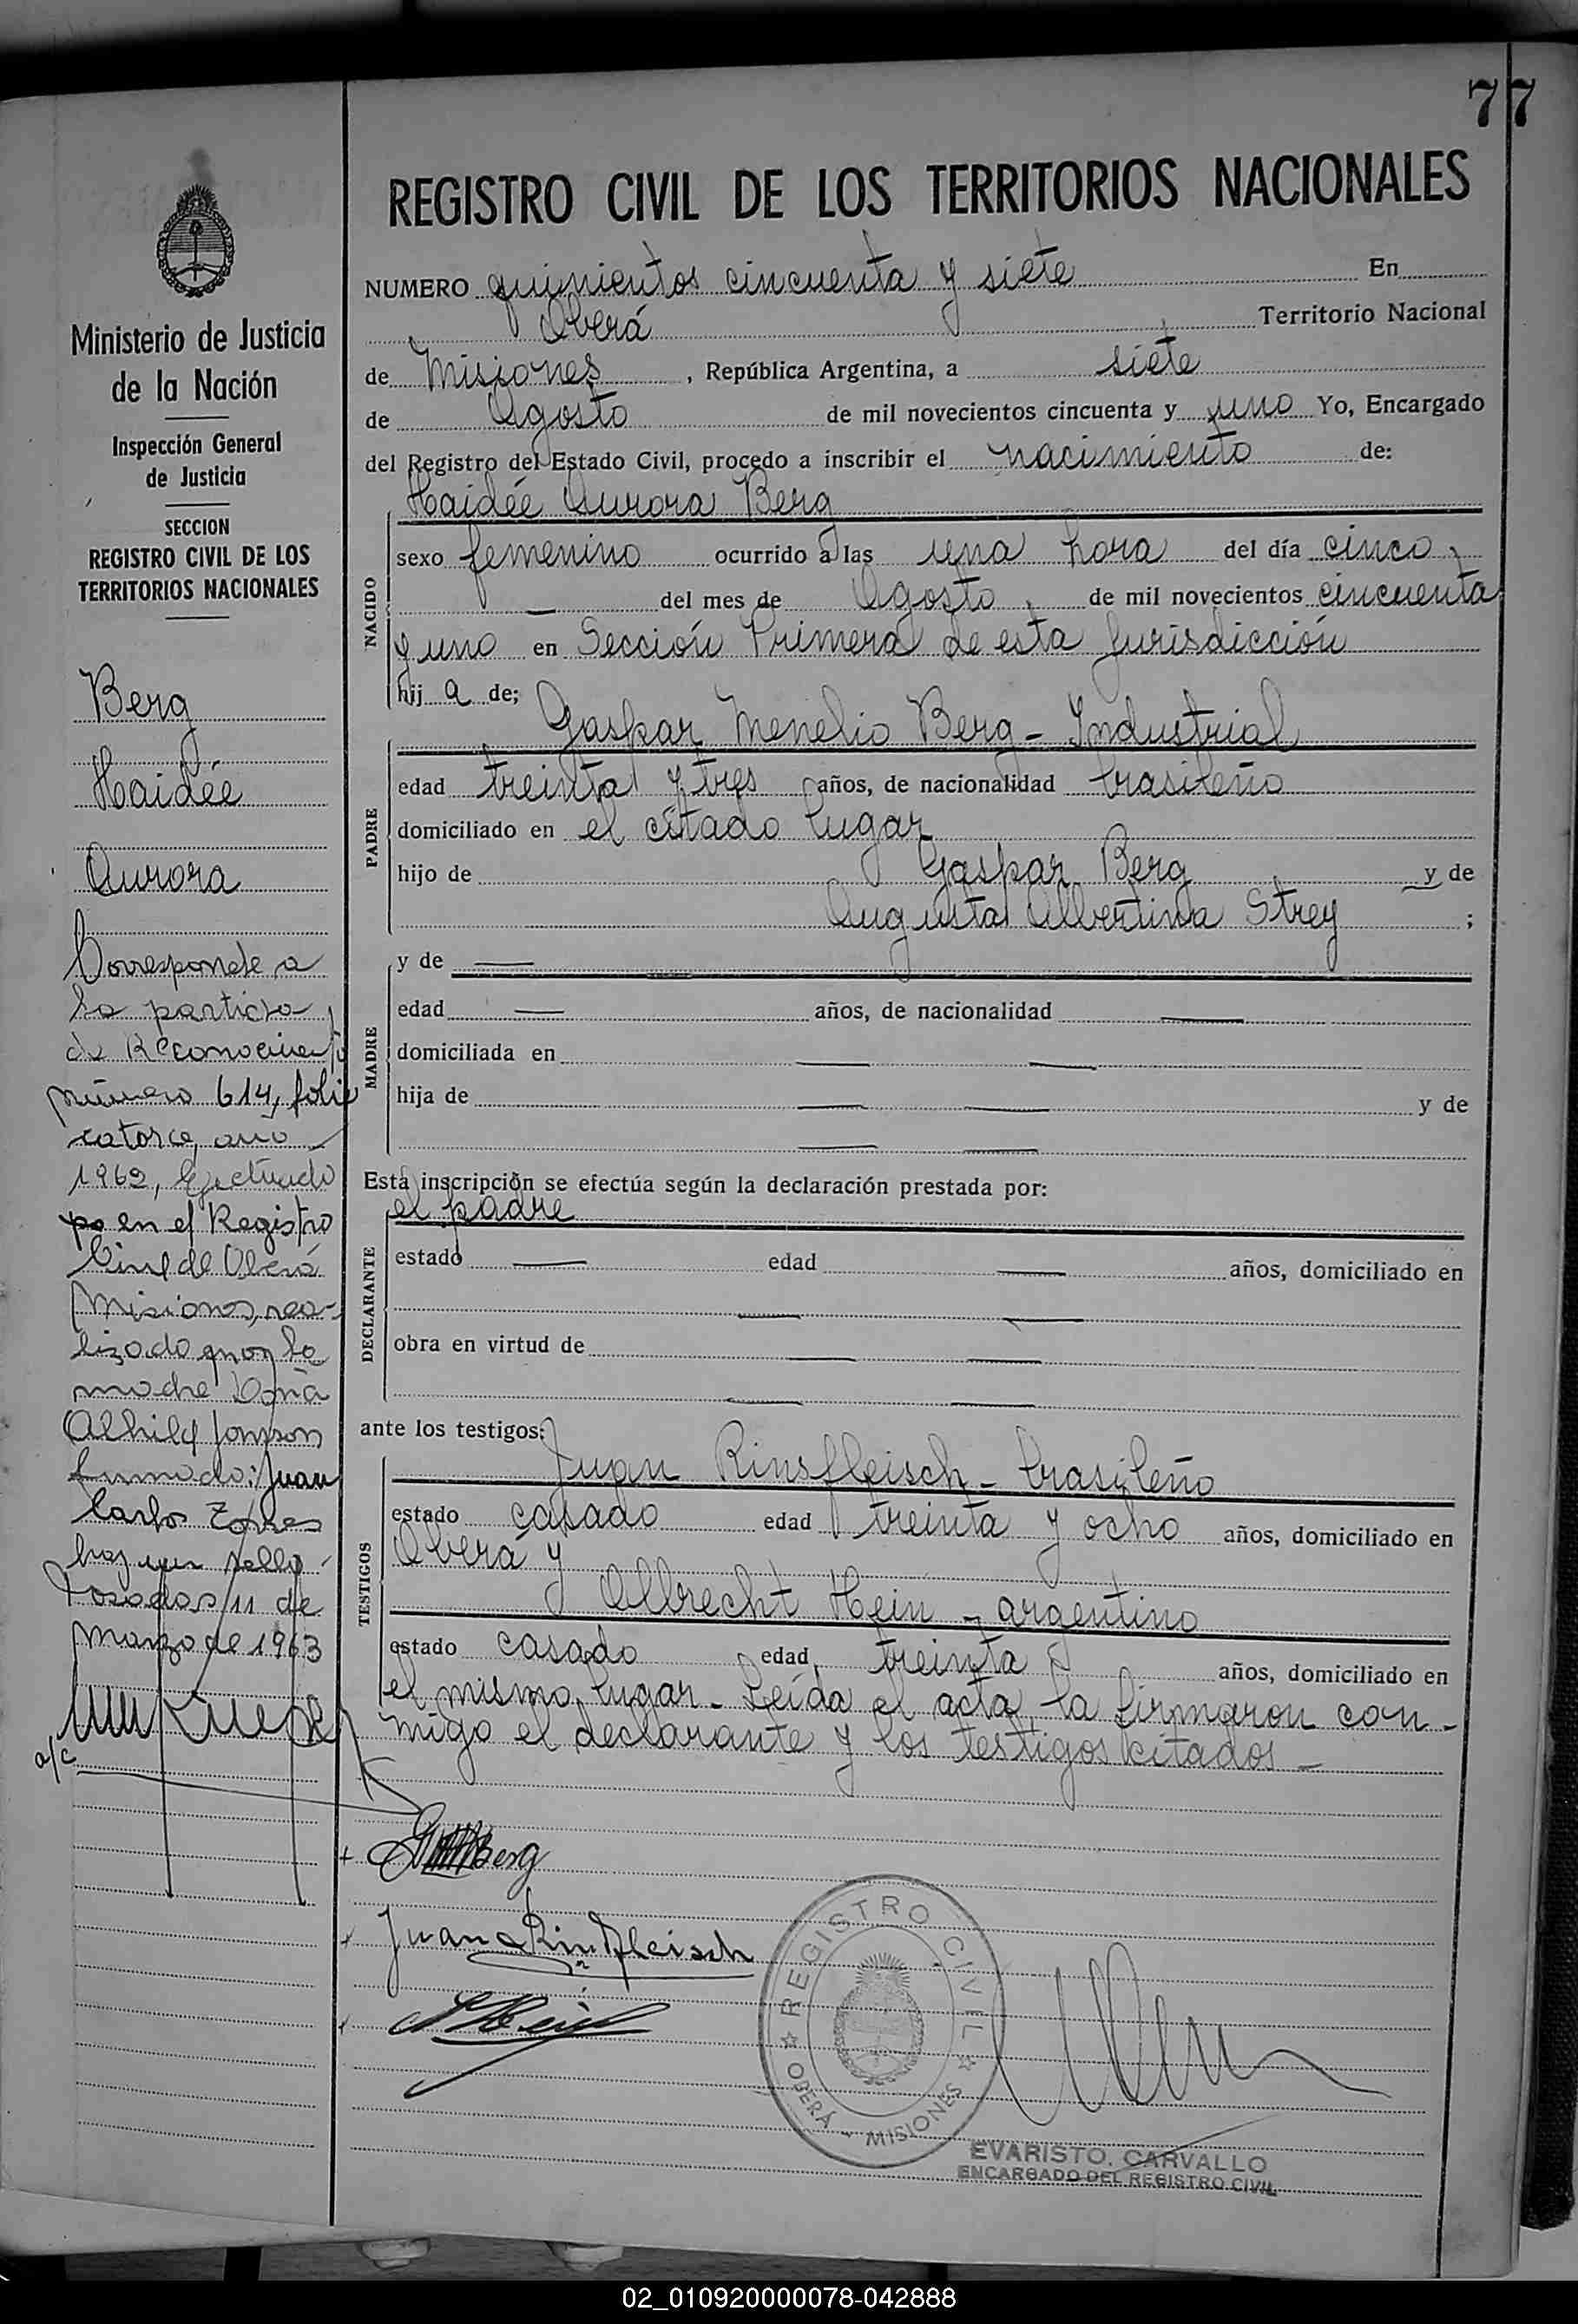 77
REGISTRO CIVIL DE LOS TERRITORIOS NACIONALES
NUMERO quinientos cincuenta y siete En
Oberá Territorio Nacional
de Misiones, República Argentina, a siete
de Agosto de mil novecientos cincuenta y uno Yo, Encargado
del Registro del Estado Civil, procedo a inscribir el nacimiento de:
Haidée Aurora Berg
NACIDO
sexo femenino ocurrido a las una hora del día cinco,
— del mes de Agosto, de mil novecientos cincuenta
y uno en Sección Primera de esta jurisdicción
hija de;
Gaspar Menelio Berg - Industrial
PADRE
edad treinta y tres años, de nacionalidad brasileño
domiciliado en el citado lugar
hijo de Gaspar Berg y de
Augusta Albertina Strey ;
MADRE
y de —
edad — años, de nacionalidad —
domiciliada en — —
hija de — — y de
— —
Esta inscripción se efectúa según la declaración prestada por:
el padre
DECLARANTE
estado — edad — años, domiciliado en
— —
obra en virtud de — —
— —
ante los testigos:
Juan Rinsfleisch - brasileño
TESTIGOS
estado casado edad treinta y ocho años, domiciliado en
Oberá y
Albrecht Hein - argentino
estado casado edad treinta años, domiciliado en
el mismo lugar - Leída el acta, la firmaron con-
migo el declarante y los testigos citados -
Berg
Juan Rinfleisch
AHein
REGISTRO CIVIL
OBERÁ - MISIONES
EVARISTO. CARVALLO
ENCARGADO DEL REGISTRO CIVIL
Ministerio de Justicia
de la Nación
Inspección General
de Justicia
SECCION
REGISTRO CIVIL DE LOS
TERRITORIOS NACIONALES
Berg
Haidée
Aurora
Corresponde a
la partida
de Reconocimiento
número 614, folio
catorce, año
1962, efectuado
en el Registro
Civil de Oberá
Misiones, rea-
lizado por la
madre Doña
Jonson
firmado: Juan
Carlos Torres
hay un sello
Posadas 11 de
Marzo de 1963
a/c
02_010920000078-042888